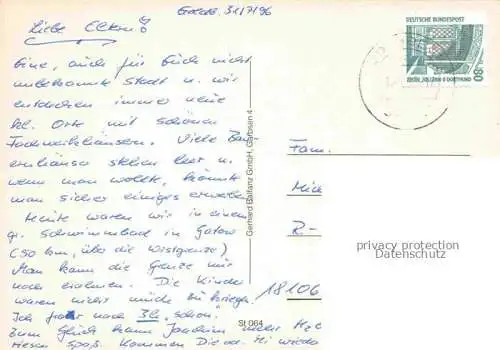 Goslar 31/7/96
Liebe Eltern!
Eine, auch für Euch nicht
unbekannte Stadt u. wir
entdecken immer neue
kl. Orte mit schönen
Fachwerkhäusern. Viele Bau-
ernhäuser stehen leer u.
wenn man wollte, könnte
man sicher einiges erwerben
Heute waren wir in einem
gr. Schwimmbad in
(50 km, über die Westgrenze)
Man kann die Grenze nur
noch erahnen. Die Kinder
waren nicht müde zu kriegen
Ich noch 3h "schön".
Zum Glück kann Joachim mehr H2O
Spaß. Kommen Die wieder
Gerhard Balfanz GmbH, Garbsen 4
St 064
DEUTSCHE BUNDESPOST
80
Fam.
Mic
R.-
18106
privacy protection
Datenschutz